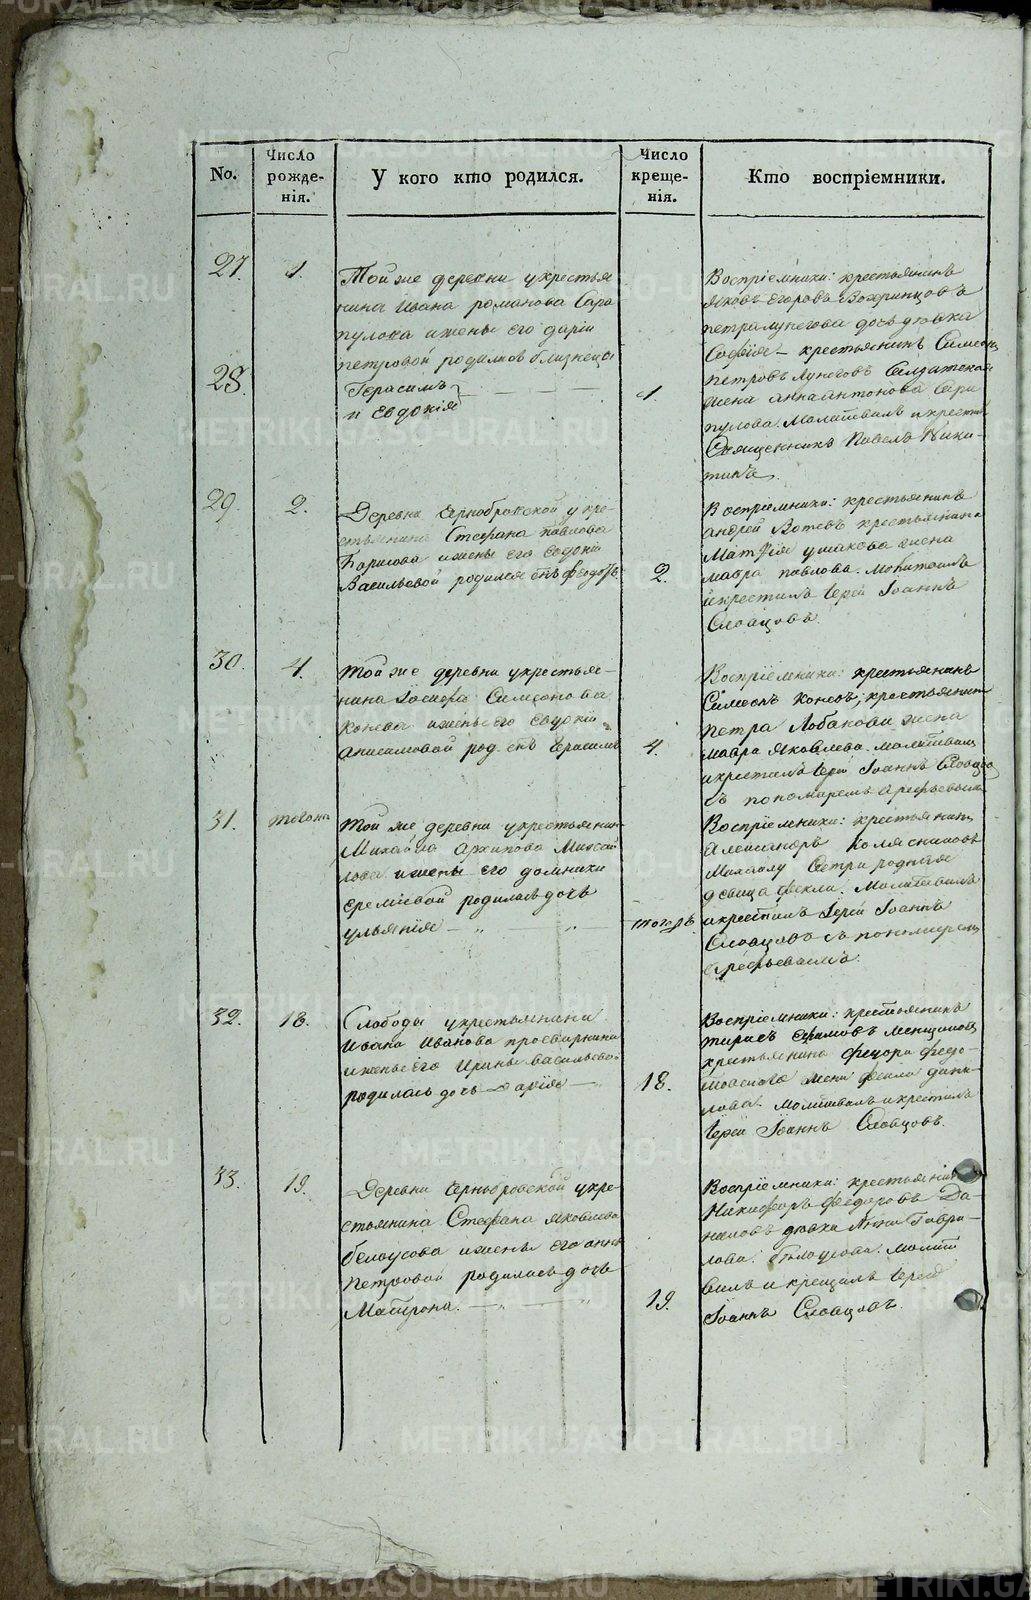 No.
Число рожденія.
У кого кто родился.
Число крещенія.
Кто воспріемники.
27.
1.
28.
Той же деревни у крестья
нина Ивана Романова Сара
пулова и жены его Дарии
Петровой родились близнецы
Герасимъ
и Евдокія
1.
Воспріемники: крестьянинъ
Яковъ Егоровъ
дочь девка
Софія – крестьянинъ Симеонъ
Петровъ Солдатская
жена Анна Антонова Сара
пулова. Молитвилъ и крестилъ
Священникъ Павелъ Ники-
тинъ.
29.
2.
Деревни Чернобровской у кре-
стьянина Стефана Павлова
и жены его Евдокіи
Васильевой родился сынъ Феодотъ
2.
Воспріемники: крестьянинъ
Андрей крестьянина
Ушакова жена
Мавра Павлова. Молитвилъ
и крестилъ Іерей Іоаннъ
Словцовъ.
30.
4.
Той же деревни у крестья-
нина Іосифа Симеонова
Конева и жены его Евдокіи
Анисимовой род. сынъ Герасимъ
4.
Воспріемники: крестьянинъ
Симеонъ Коневъ, крестьянина
Петра Лобанова жена
Мавра Яковлева. Молитвилъ
и крестилъ Іерей Іоаннъ Словцовъ
съ пономаремъ
31.
Той же деревни у крестьянина
Михаила Архипова
и жены его Домники
Еремеевой родилась дочь
Ульянія
тогожъ
Воспріемники: крестьянинъ
Александръ
сестра родная
девица Фекла. Молитвилъ
и крестилъ Іерей Іоаннъ
Словцовъ съ пономаремъ
32.
18.
Слободы у крестьянина
Ивана Иванова Просвирнина
и жены его Ирины Васильевой
родилась дочь Дарія
18.
Воспріемники: крестьянинъ
Ефимовъ
крестьянина Федора
жена Фекла Дани-
лова. Молитвилъ и крестилъ
Іерей Іоаннъ Словцовъ.
33.
19.
Деревни Чернобровской у кре-
стьянина Стефана Яковлева
Белоусова и жены его Анны
Петровой родилась дочь
Матрона.
19.
Воспріемники: крестьянинъ
Никифоръ Федоровъ Да-
ниловъ девка Анна Гаври-
лова Белоусова. Молит
вилъ и крещилъ Іерей
Іоаннъ Словцовъ.
METRIKI.GASO-URAL.RU